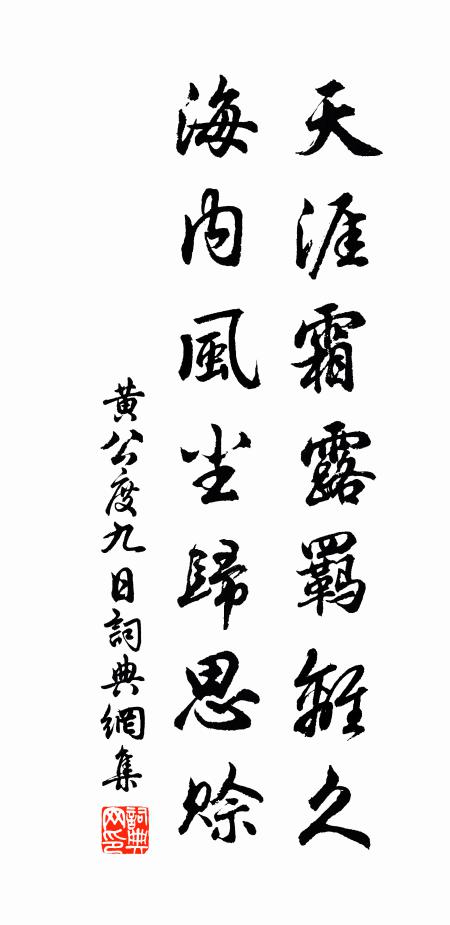 天涯霜露羈離久
海内風尘歸思賒
黄公度九日詞典網集
詞典网印